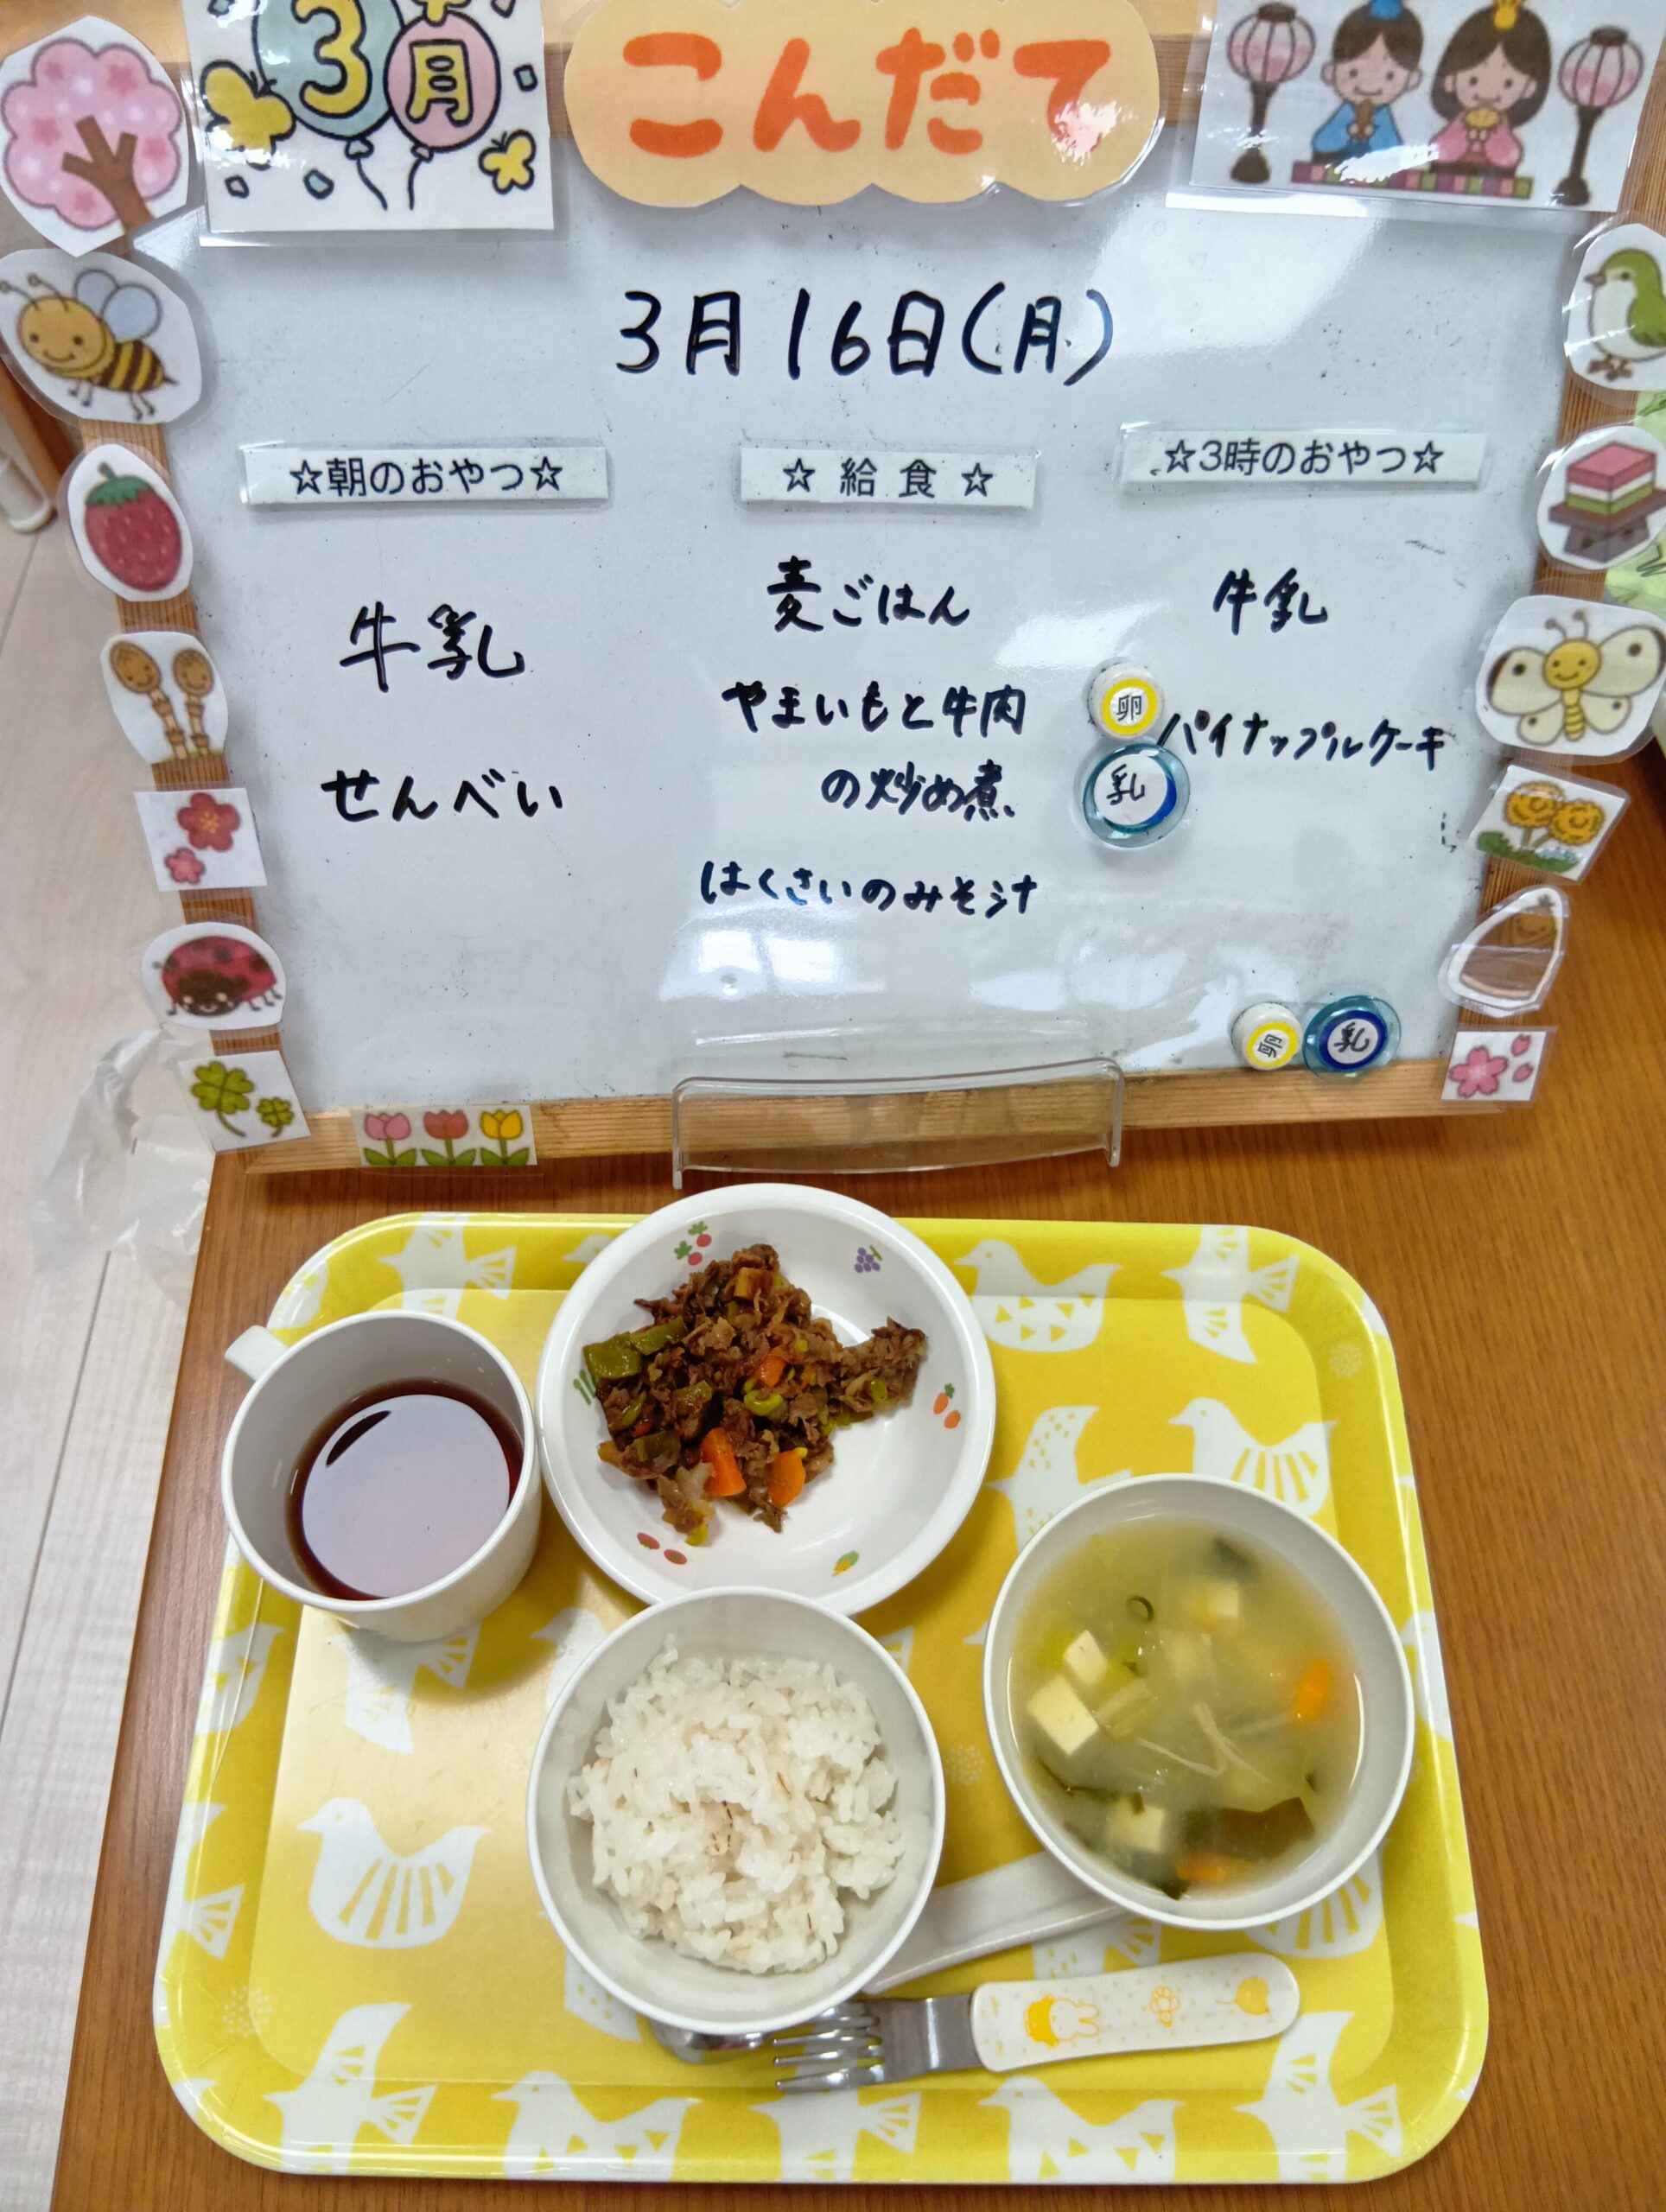 3月
こんだて
3月16日(月)
☆朝のおやつ☆
☆給食☆
☆3時のおやつ☆
牛乳
せんべい
麦ごはん
やまいもと牛肉
の炒め煮
はくさいのみそ汁
牛乳
卵
乳
パイナップルケーキ
卵
乳